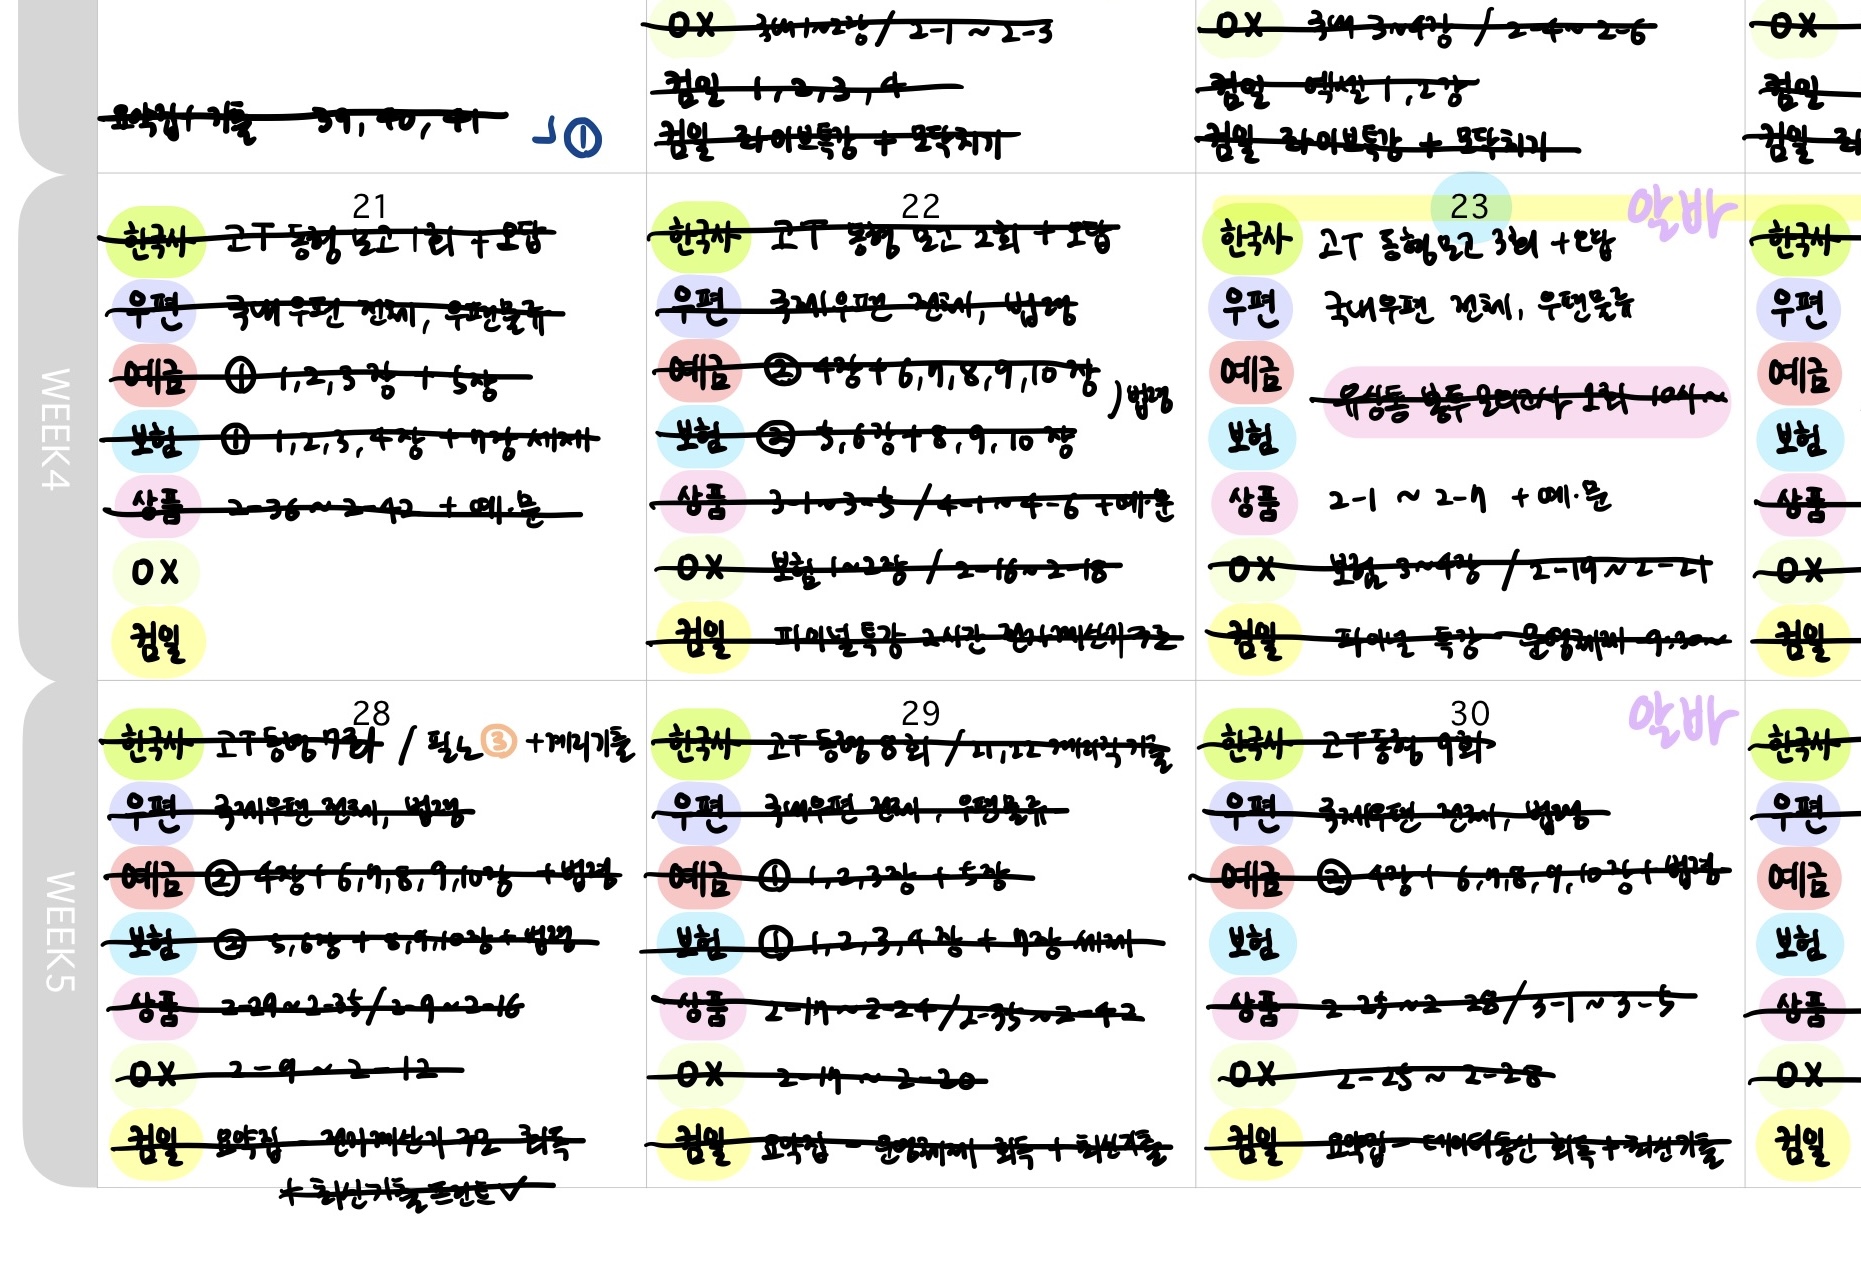 OX 국내 1~2장 / 2-1 ~ 2-3
컴일 1, 2, 3, 4
컴일 라이브특강 + 모닥치기
OX 3~4장 / 2-4 ~ 2-6
컴일 엑셀 1, 2강
컴일 라이브특강 + 모닥치기
OX
컴일
컴일 라
요약집 / 기출 39, 40, 41
①
WEEK4
21
한국사 고T 동형 모고 1회 + 오답
우편 국내우편 전체, 우편물류
예금 ① 1, 2, 3장 + 5장
보험 ① 1, 2, 3, 4장 + 7장 세제
상품 2-36 ~ 2-42 + 예·문
OX
컴일
22
한국사 고T 동형 모고 2회 + 오답
우편 국제우편 전체, 법령
예금 ② 4장 + 6, 7, 8, 9, 10장
) 법령
보험 ② 5, 6장 + 8, 9, 10장
상품 3-1 ~ 3-5 / 4-1 ~ 4-6 + 예·문
OX 보험 1~2장 / 2-16 ~ 2-18
컴일 파이널특강 2시간 전자계산기구조
23
알바
한국사 고T 동형모고 3회 + 오답
우편 국내우편 전체, 우편물류
예금
유상통 봉투모의고사 1회 10시~
보험
상품 2-1 ~ 2-7 + 예·문
OX 보험 3~4장 / 2-19 ~ 2-21
컴일 파이널 특강 운영체제 9:30~
한국사
우편
예금
보험
상품
OX
컴일
WEEK5
28
한국사 고T동형 7회 / 필노 ③ + 계리기출
우편 국제우편 전체, 법령
예금 ② 4장 + 6, 7, 8, 9, 10장 + 법령
보험 ② 5, 6장 + 8, 9, 10장 + 법령
상품 2-29 ~ 2-35 / 2-9 ~ 2-16
OX 2-9 ~ 2-12
컴일 요약집 - 전자계산기 구조 회독
+ 최신기출 프린트 ✓
29
한국사 고T동형 8회 / 21, 22 계리직기출
우편 국내우편 전체, 우편물류
예금 ① 1, 2, 3장 + 5장
보험 ① 1, 2, 3, 4장 + 7장 세제
상품 2-17 ~ 2-24 / 2-35 ~ 2-42
OX 2-17 ~ 2-20
컴일 요약집 - 운영체제 회독 + 최신기출
30
알바
한국사 고T동형 9회
우편 국제우편 전체, 법령
예금 ② 4장 + 6, 7, 8, 9, 10장 + 법령
보험
상품 2-25 ~ 2-28 / 3-1 ~ 3-5
OX 2-25 ~ 2-28
컴일 요약집 - 데이터통신 회독 + 최신기출
한국사
우편
예금
보험
상품
OX
컴일